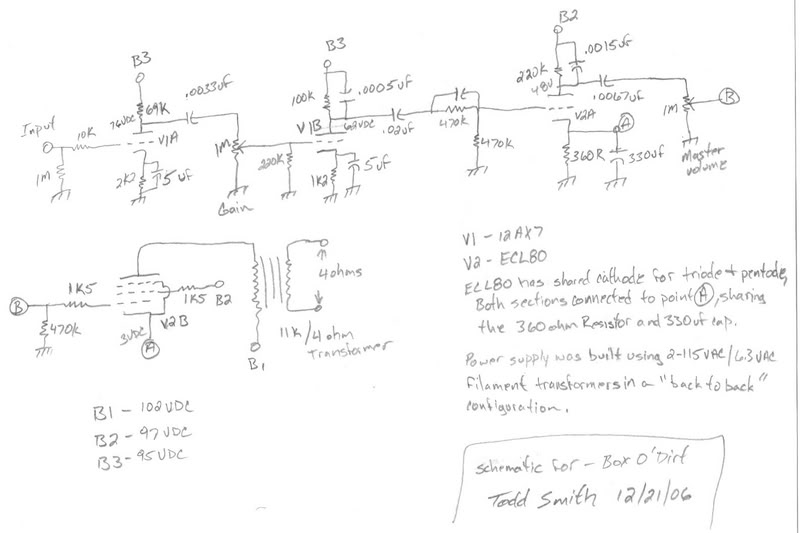 B3
B3
B2
.0033uF
.0015uF
69K
76VDC
100K
.0005uF
220K
48V
.0067uF
Input
10K
V1A
1M
V1B
62VDC
.02uF
470K
V2A
A
1M
B
1M
2K2
5uF
220K
1K2
5uF
470K
360R
330uF
Master
Volume
Gain
V1 - 12AX7
V2 - ECL80
ECL80 has shared cathode for triode + pentode,
Both sections connected to point A, sharing
the 360ohm Resistor and 330uf cap.
4ohms
1K5
1K5
B2
B
470K
V2B
3VDC
A
11K/4ohm
Transformer
B1
Power supply was built using 2-115VAC/6.3VAC
Filament transformers in a "back to back"
configuration.
B1 - 102VDC
B2 - 97VDC
B3 - 95VDC
schematic for - Box O'Dirt
Todd Smith 12/21/06